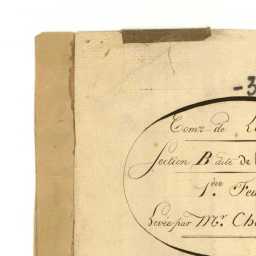 -3
Com.ne de
Section B dite de
1.ère Feu
Levée par Mr. Ch